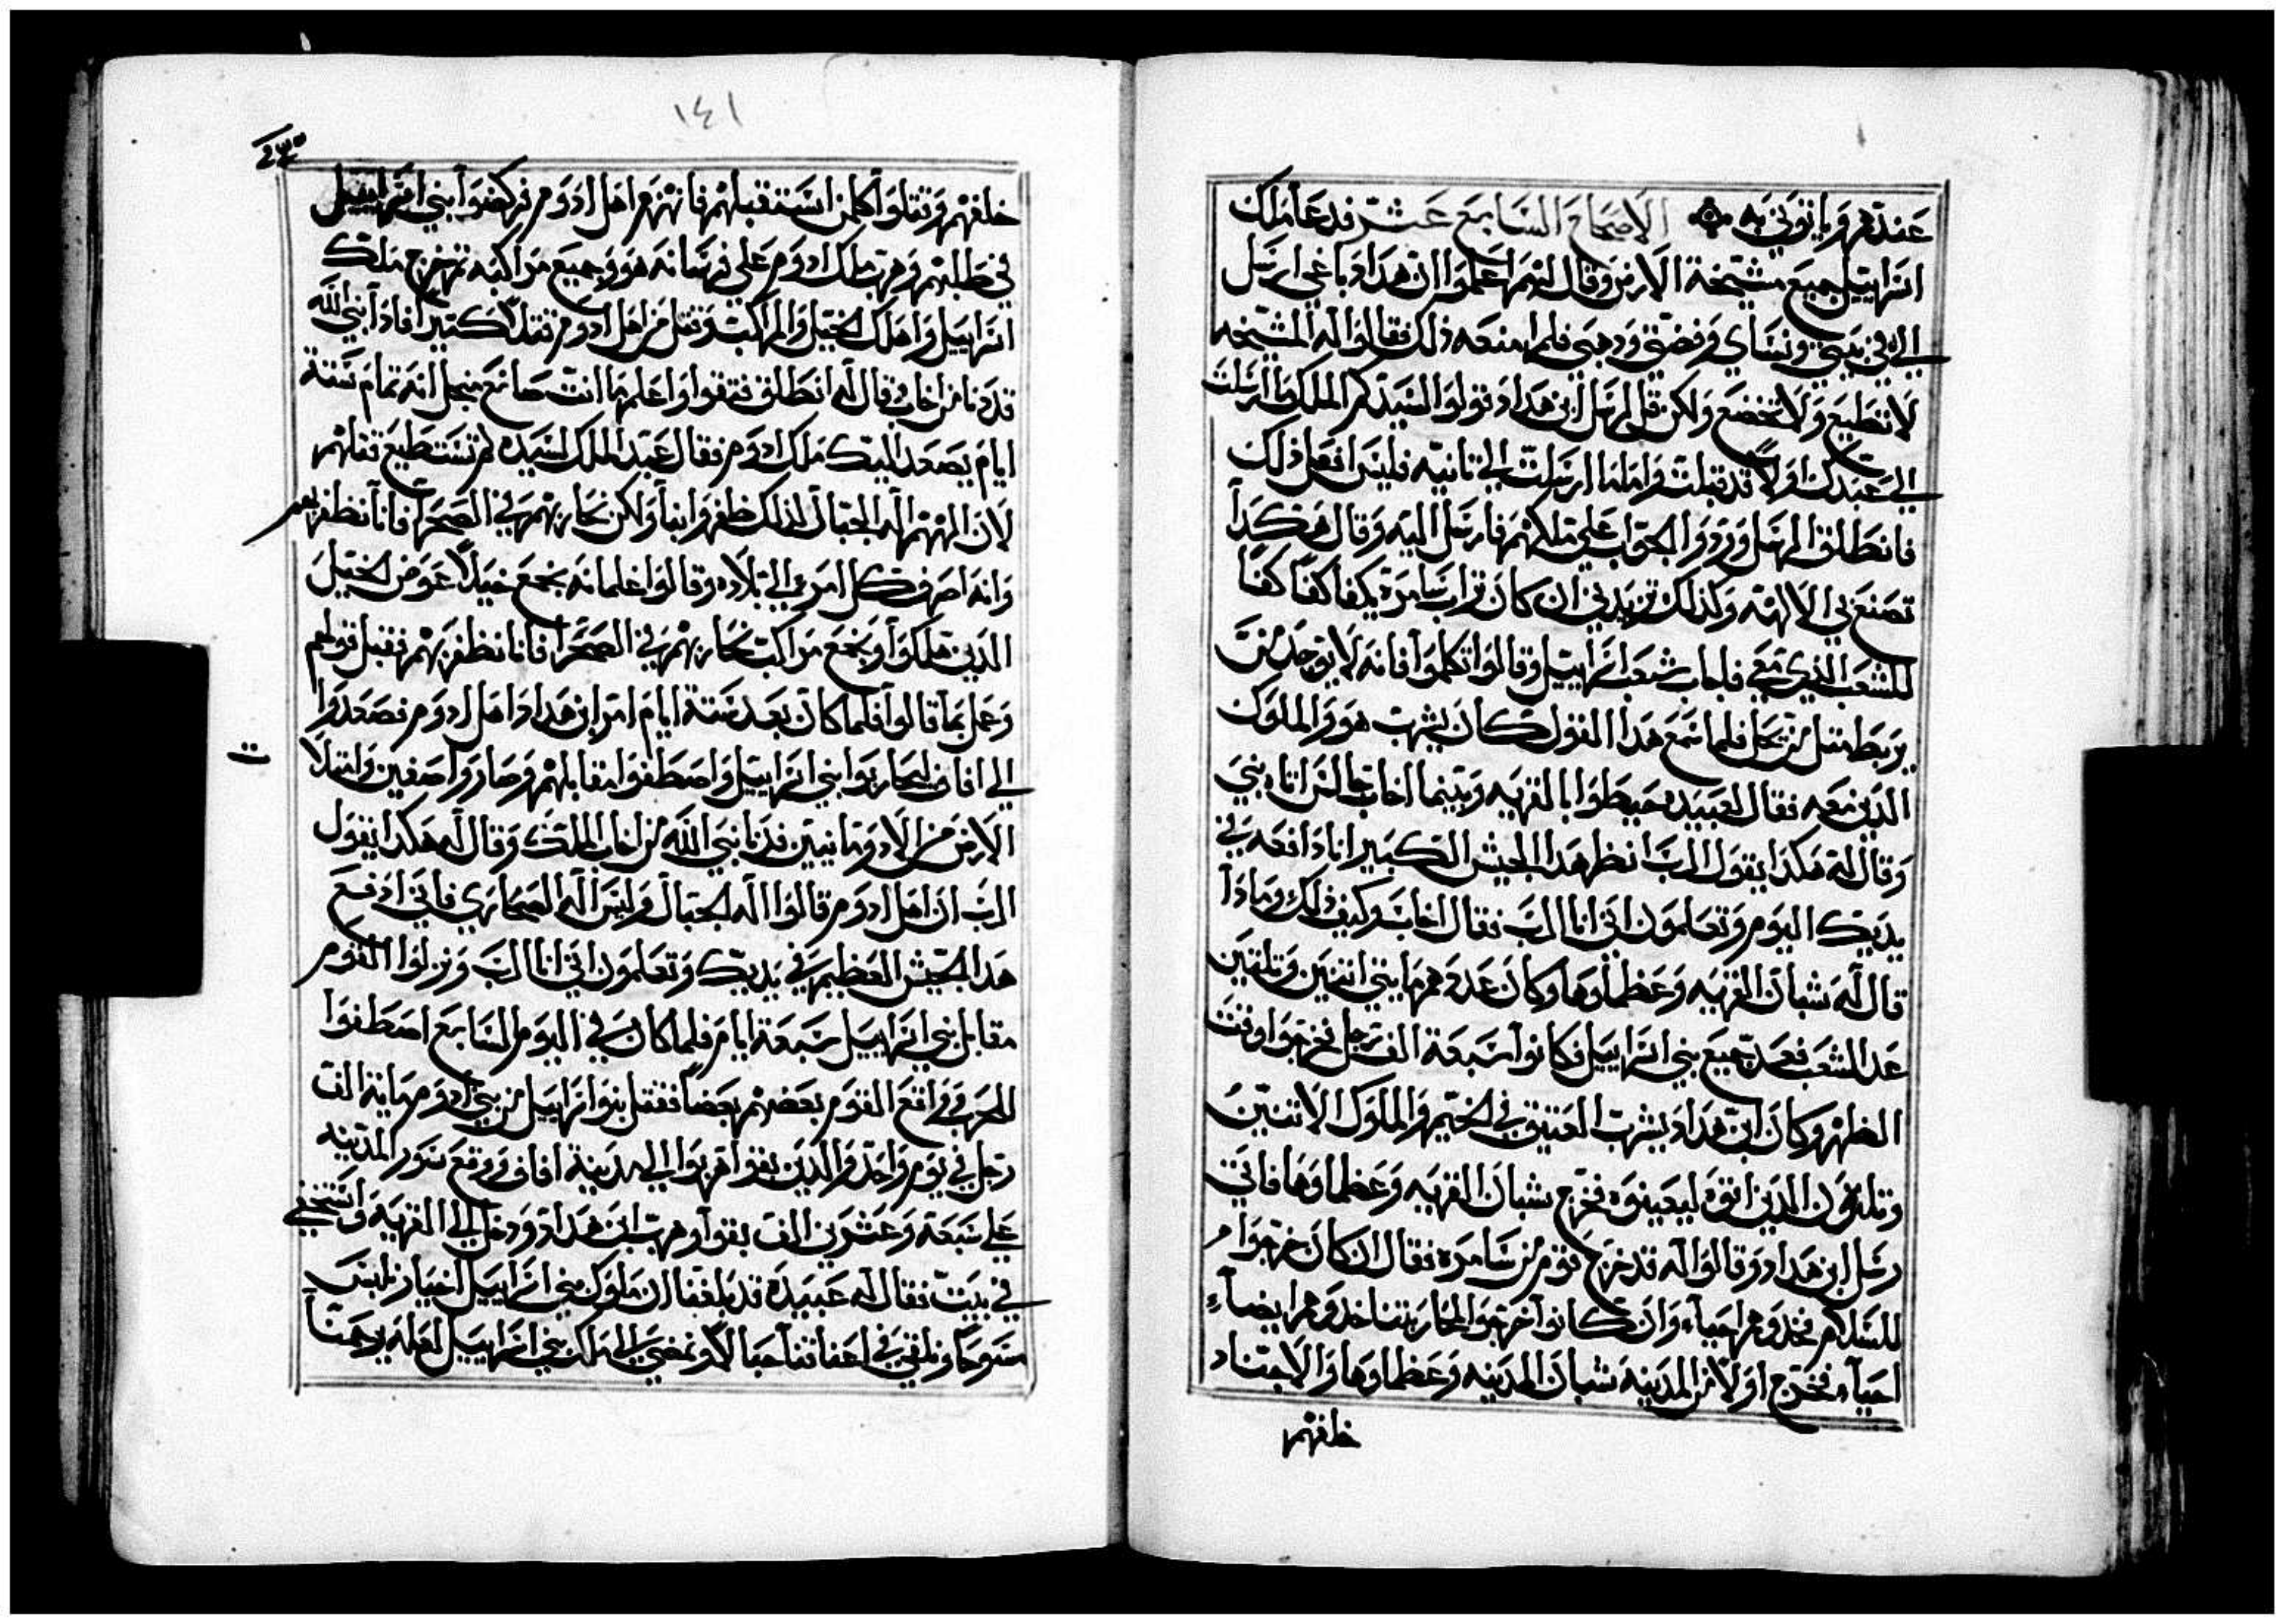 عندهم وياتوني به الاصحاح السابع عشر فدعا ملك
اسراييل جميع مشيخة الارض وقال لهم اعلموا ان هداد باغي ارسل
الي في بنيي ونساي وفضتي ودهبي فلم امنعه ذلك فقالوا له المشيخه
لا تطيع ولا تخضع ولكن قل لرسل ابن هداد قولوا لسيدكم الملك ما ارسلت
الي عبدك اولاً قد قبلت واما ما ارسلت الي تانيه فليس افعل ذلك
فانطلق الرسل وردوا الجواب علي ملكهم فارسل اليه وقال هكدا
تصنع بي الالهه وكذلك تزيدني ان كان تراب سامره يكفا كفاً كفاً
للشعب الذي معي فاجاب شعب اسراييل وقالوا تكلموا فانه لا يوجد من
يربط مثل من يحل فلما سمع هدا القول كان يشرب هو والملوك
الدين معه فقال لعبيده حيطوا بالقريه وبينما اخاب جالس اتاه نبي
وقال له هكدا يقول الرب انظر هدا الجيش الكبير انا دافعه في
يديك اليوم وتعلمون اني انا الرب فقال اخاب وكيف ذلك ومادا
قال له شبان القريه وعظماوها وكان عددهم مايتي اتنين وتلتين
عد الشعب فعد جميع بني اسراييل فكانوا سبعة الف رجل فخرجوا وقت
الظهر وكان ابن هداد يشرب العتيق في الخيم والملوك الاتنين
وتلاتون الدين اتوه ليعينوه فخرج شبان القريه وعظماوها فاتي
رسل ابن هداد وقالوا له قد خرج قوم من سامره فقال ان كان خرجوا
للسلام فخدوهم احياء وان كانوا خرجوا لمحاربتنا خدوهم ايضاً
احياء فخرج اولاً من المدينه شبان المدينه وعظماوها والاجناد
خلفهم
١٤١
خلفهم وقتلوا كلمن استقبلهم فانهزم اهل ادوم فركضوا بني اسراييل
في طلبهم وهرب ملك ادوم علي فرسانه هو وجميع مراكبه تم خرج ملك
اسراييل واهلك الخيل والمراكب وقتل من اهل ادوم قتلاً كتيراً فاد بنبي الله
قد دنا من اخاب وقال له انطلق فتقوا واعلم ما انت صانع منجل انه تمام سنة
ايام يصعد اليك ملك ادوم فقال عبد الملك لسيده لم تستطيع تقلهم
لان الههم اله الجبال لذلك ظفروا بنا ولكن نحاربهم في الصحرا فانا نظفر بهم
وانه اصرف كل امرء الي بلاده وقالوا غلمانه نجمع خيلاً عوض الخيل
الدين هلكوا ونجمع مراكب نحاربهم في الصحرا فانا نظفر بهم فقبل قولهم
وعمل بما قالوا فلما كان بعد سنة ايام امر ابن هداد اهل ادوم فصعدوا
الي افاف ليحاربوا بني اسراييل واصطفوا مقابلهم وصاروا صفين وامتلا
الارض من الادومانيين فدنا نبي الله من اخاب الملك وقال له هكدا يقول
الرب ان اهل ادوم قالوا اله الجبال وليس اله الصحاري فاني ادفع
هدا الجيش العظيم في يديك وتعلمون اني انا الرب ونزلوا القوم
مقابل بني اسراييل سبعة ايام فلما كان في اليوم السابع اصطفوا
للحرب وواقع القوم بعضهم بعضاً فقتل بنوا اسراييل من بني ادوم ماية الف
رجل في يوم واحد والدين بقوا هربوا الي مدينة افاف ووقع سور المدينه
علي سبعة وعشرين الف بقوا وهرب ابن هداد ودخل الي القريه واستخفي
في بيت فقال له عبيده قد بلغنا ان ملوك بني اسراييل اخيار نلبس
مسوحاً ونلقي في اعناقنا حبالاً ونمضي الي ملك بني اسراييل لعله يرحمنا